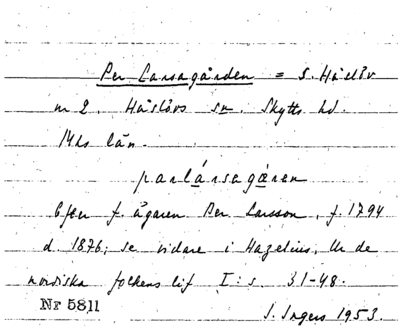 Per Larsagården = S. Håslöv
nr 2. Håslövs sn. Skytts hd.
Mhs län.
parlársagæren
Efter f. ägaren Per Larsson, f. 1794
d. 1876; se vidare i Hazelius, Ur de
nordiska folkens lif I: s. 31-48.
Nr 5811
I. Ingers 1953.